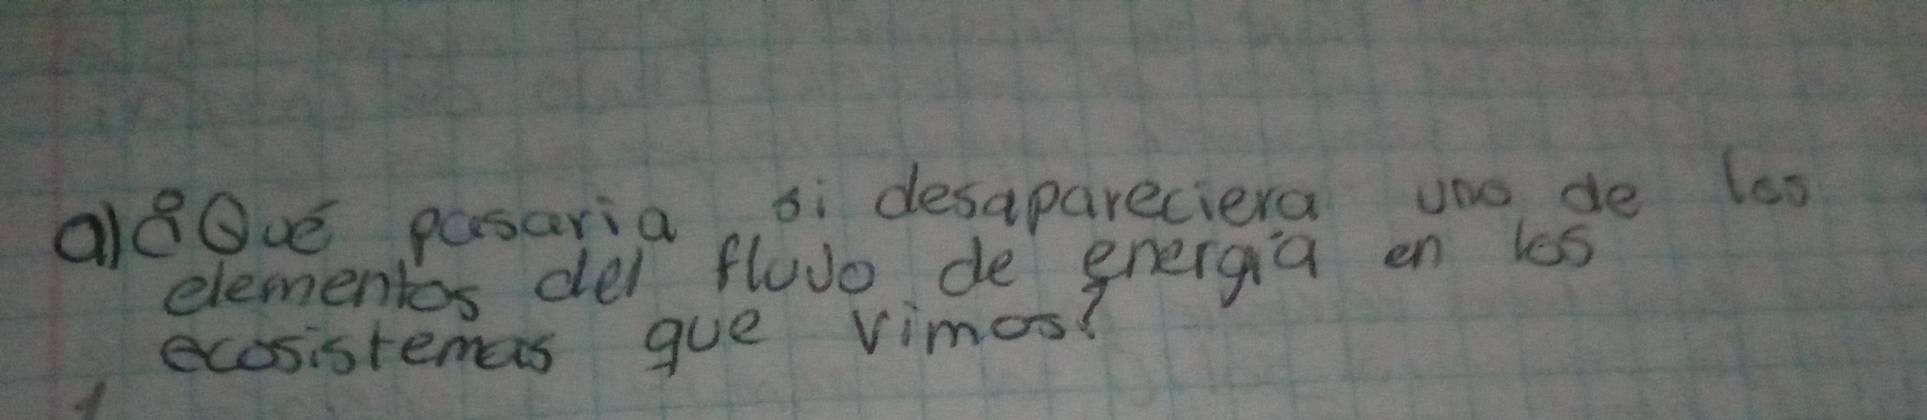 a) ¿Qué pasaria si desapareciera uno de los
elementos del flujo de energía en los
ecosistemas que vimos?